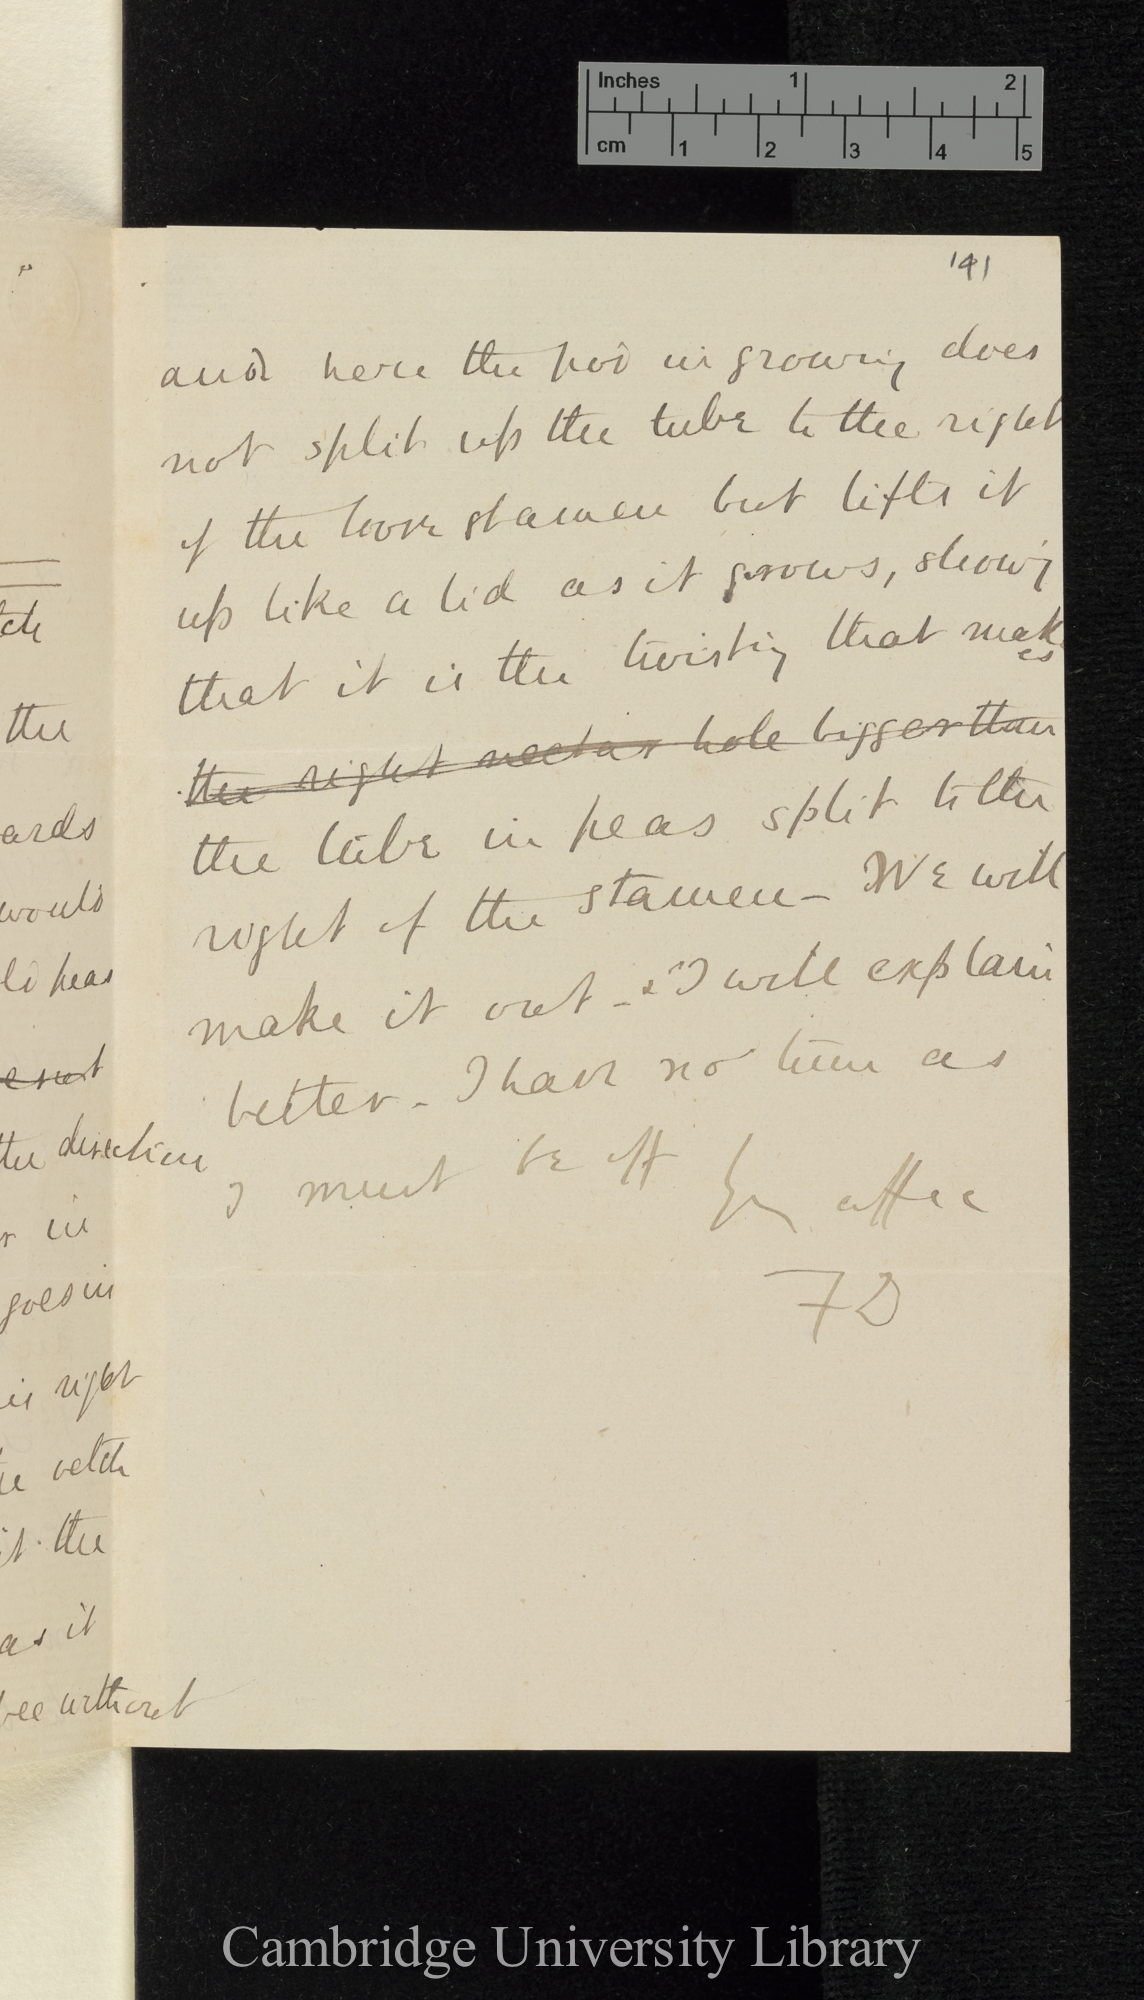 Inches 1 2
cm 1 2 3 4 5
141
and here the pod in growing does
not split up the tube to the right
of the loose stamen but lifts it
up like a lid as it grows, showg
that it is the twisting that makes
the right nectar hole bigger than
the tube in peas split to the
right of the stamen – We will
make it out – & I will explain
better – I have no time as
I must be off Yr affec
FD
tch
the
ards
would
peas
the direction
in
goes in
is right
vetch
the
as it
bee without
Cambridge University Library